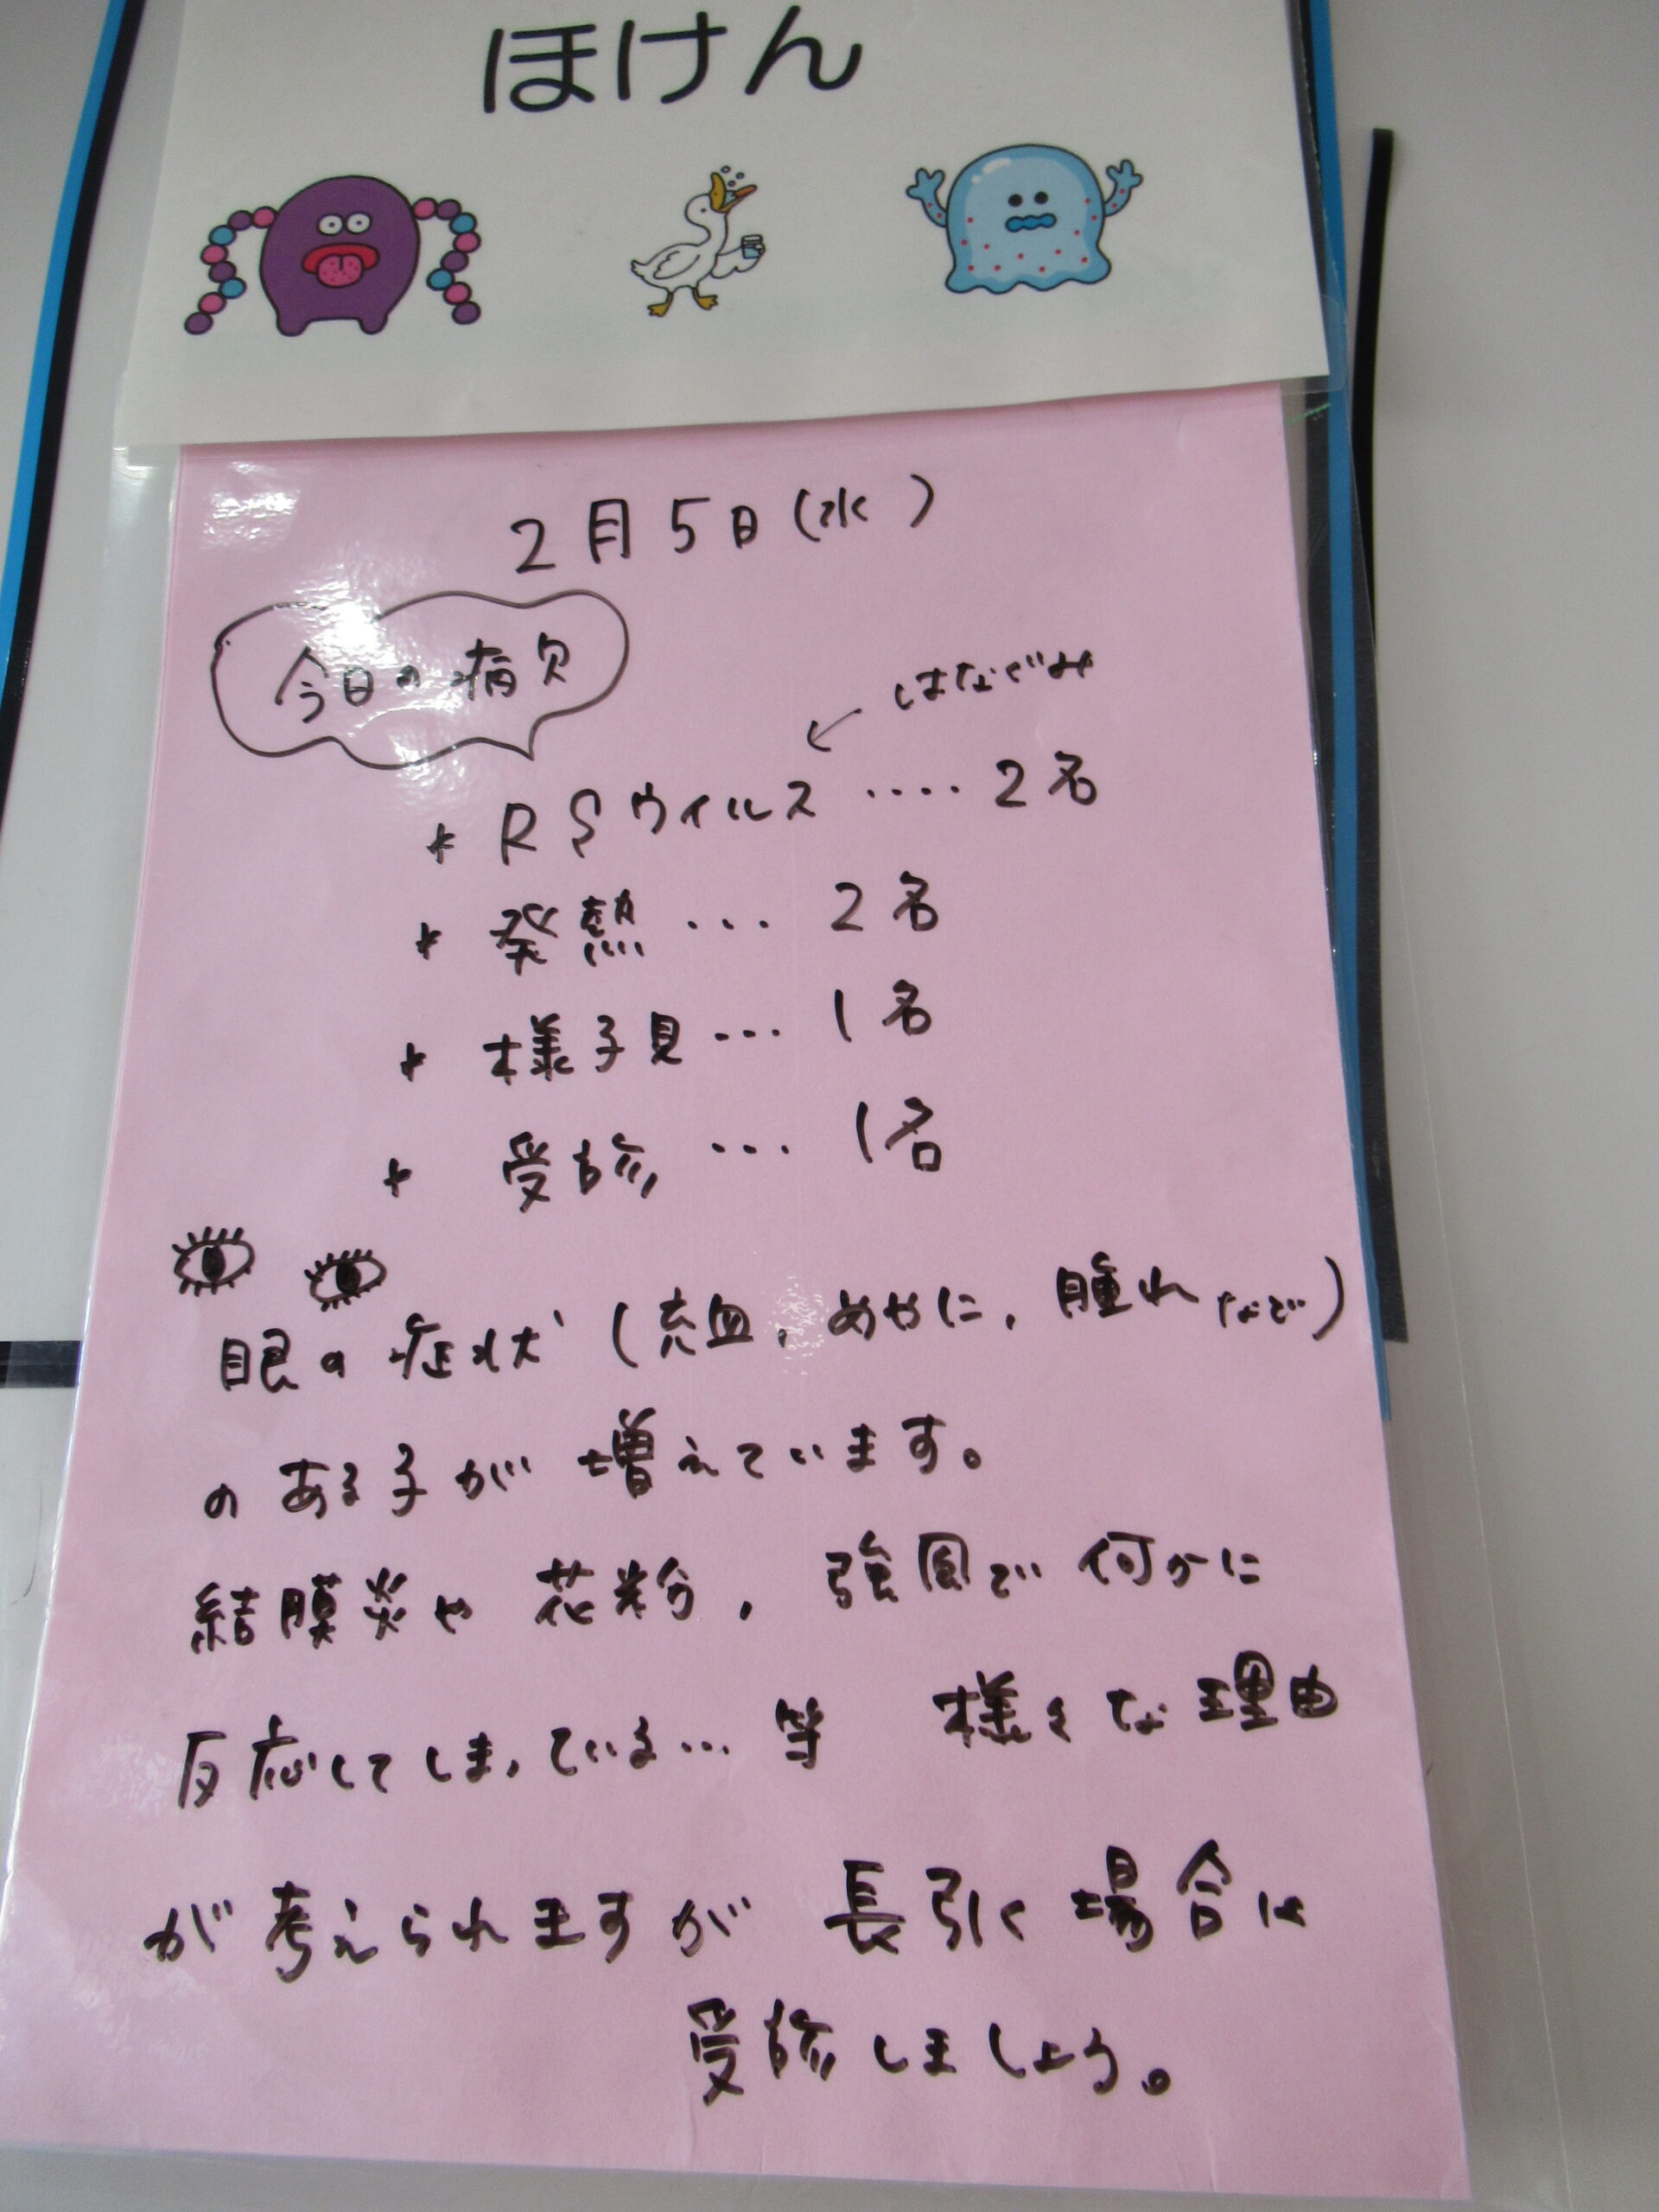 ほけん
2月5日(水)
今日の病欠
はなぐみ
* RSウイルス ‥‥ 2名
* 発熱 … 2名
* 様子見 … 1名
* 受診 … 1名
眼の症状(充血,めやに,腫れなど)
のある子が増えています。
結膜炎や花粉,強風で何かに
反応してしまっている…等 様々な理由
が考えられますが長引く場合は
受診しましょう。